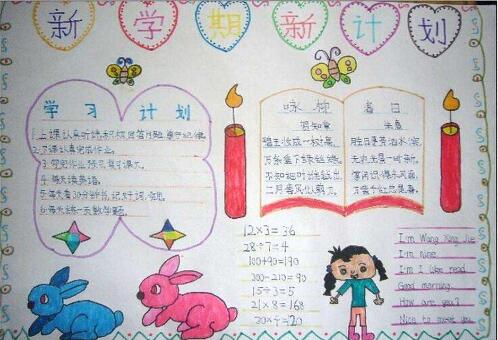 新学期新计划
学习计划
1.上课认真听讲,积极回答问题,遵守纪律。
2.下课认真完成作业。
3.写完作业练习复习课文。
4.每天读英语。
5.每天看30分钟书,记好词、好句。
6.每天练一页数学题。
咏柳
贺知章
碧玉妆成一树高,
万条垂下绿丝绦。
不知细叶谁裁出,
二月春风似剪刀。
春日
朱熹
胜日寻芳泗水滨,
无边光景一时新。
等闲识得东风面,
万紫千红总是春。
12×3=36
28÷7=4
100+90=190
300-210=90
15÷3=5
21×8=168
I'm Wang
I'm nine
I'm I like read
Good morning
How are you?
Nice to meet you